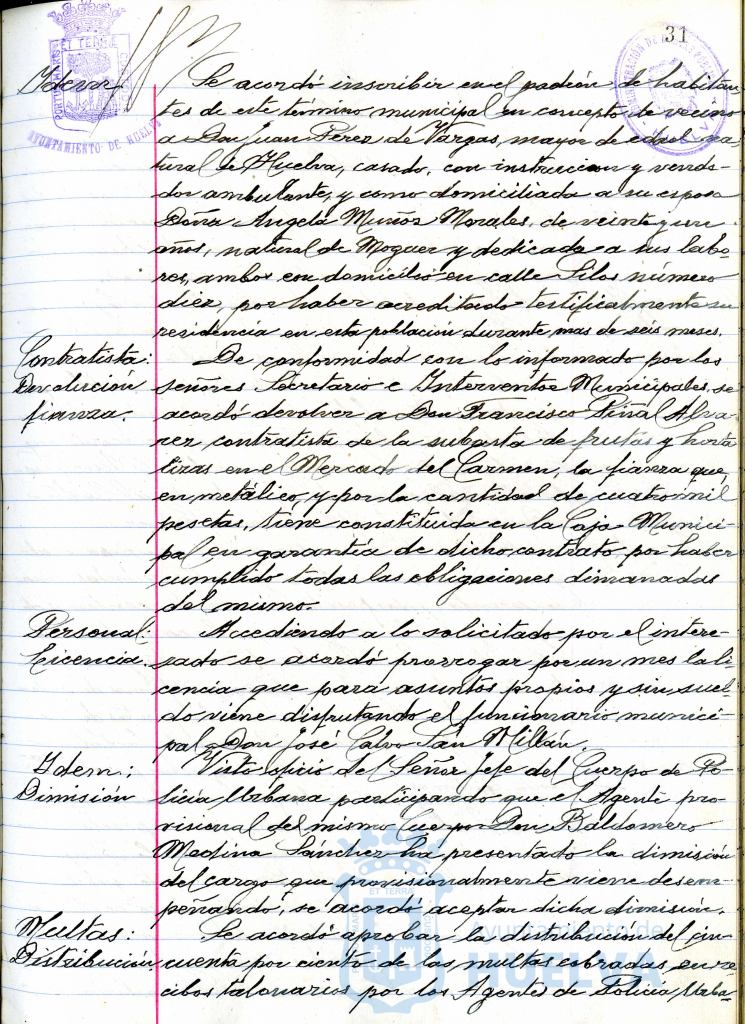 31
AYUNTAMIENTO DE HUELVA
Idem
Se acordó inscribir en el padrón de habitan-
tes de este término municipal en concepto de vecino
a Don Juan Pérez de Vargas, mayor de edad, na-
tural de Huelva, casado, con instruccion y vende-
dor ambulante, y como domiciliada a su esposa
Doña Angela Muñoz Morales, de veinte y un
años, natural de Moguer y dedicada a sus labo-
res, ambos con domicilio en calle Silos número
diez, por haber acreditado testificalmente su
residencia en esta población durante mas de seis meses.
Contratista:
Devolución
fianza.
De conformidad con lo informado por los
señores Secretario e Interventor Municipales, se
acordó devolver a Don Francisco Piñal Alva-
rez, contratista de la subasta de frutas y horta-
lizas en el Mercado del Carmen, la fianza que,
en metálico, y por la cantidad de cuatro mil
pesetas, tiene constituida en la Caja Munici-
pal en garantía de dicho contrato, por haber
cumplido todas las obligaciones dimanadas
del mismo.
Personal:
Licencia.
Accediendo a lo solicitado por el intere-
sado se acordó prorrogar por un mes la li-
cencia que para asuntos propios y sin suel-
do viene disfrutando el funcionario munici-
pal Don José Calvo San Millán.
Idem:
Dimisión
Visto oficio del Señor Jefe del Cuerpo de Po-
licia Urbana participando que el Agente pro-
visional del mismo Cuerpo Don Baldomero
Medina Sánchez ha presentado la dimisión
del cargo que provisionalmente viene desem-
peñando, se acordó aceptar dicha dimisión.
Multas:
Distribución
Se acordó aprobar la distribución del cin-
cuenta por ciento de las multas cobradas, en re-
cibos talonarios por los Agentes de Policía Urba-
Ayuntamiento de
HUELVA